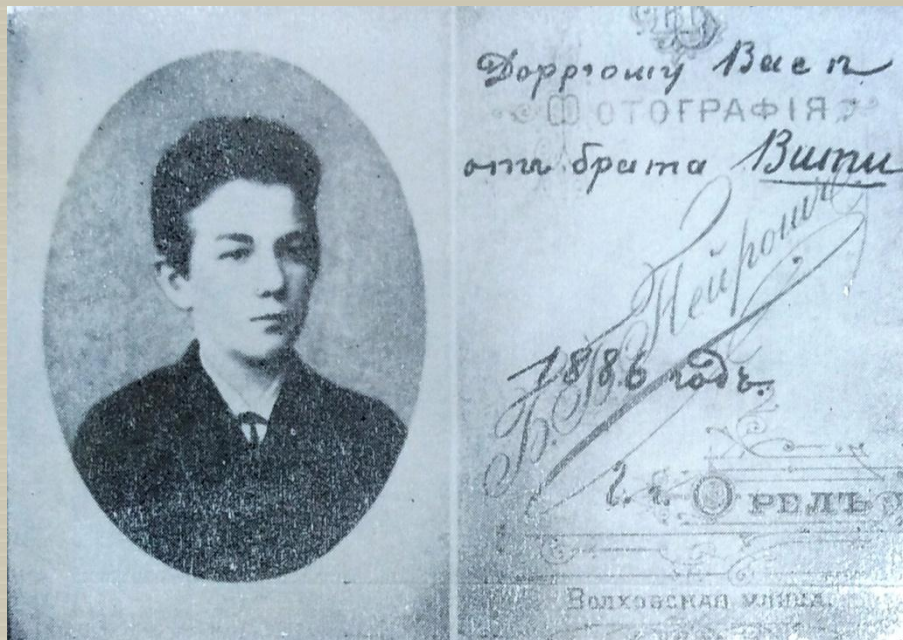 Доррзому Васе
ФОТОГРАФІЯ
отъ брата Вити
1886 годъ.
ОРЕЛЪ
Болховская улица.